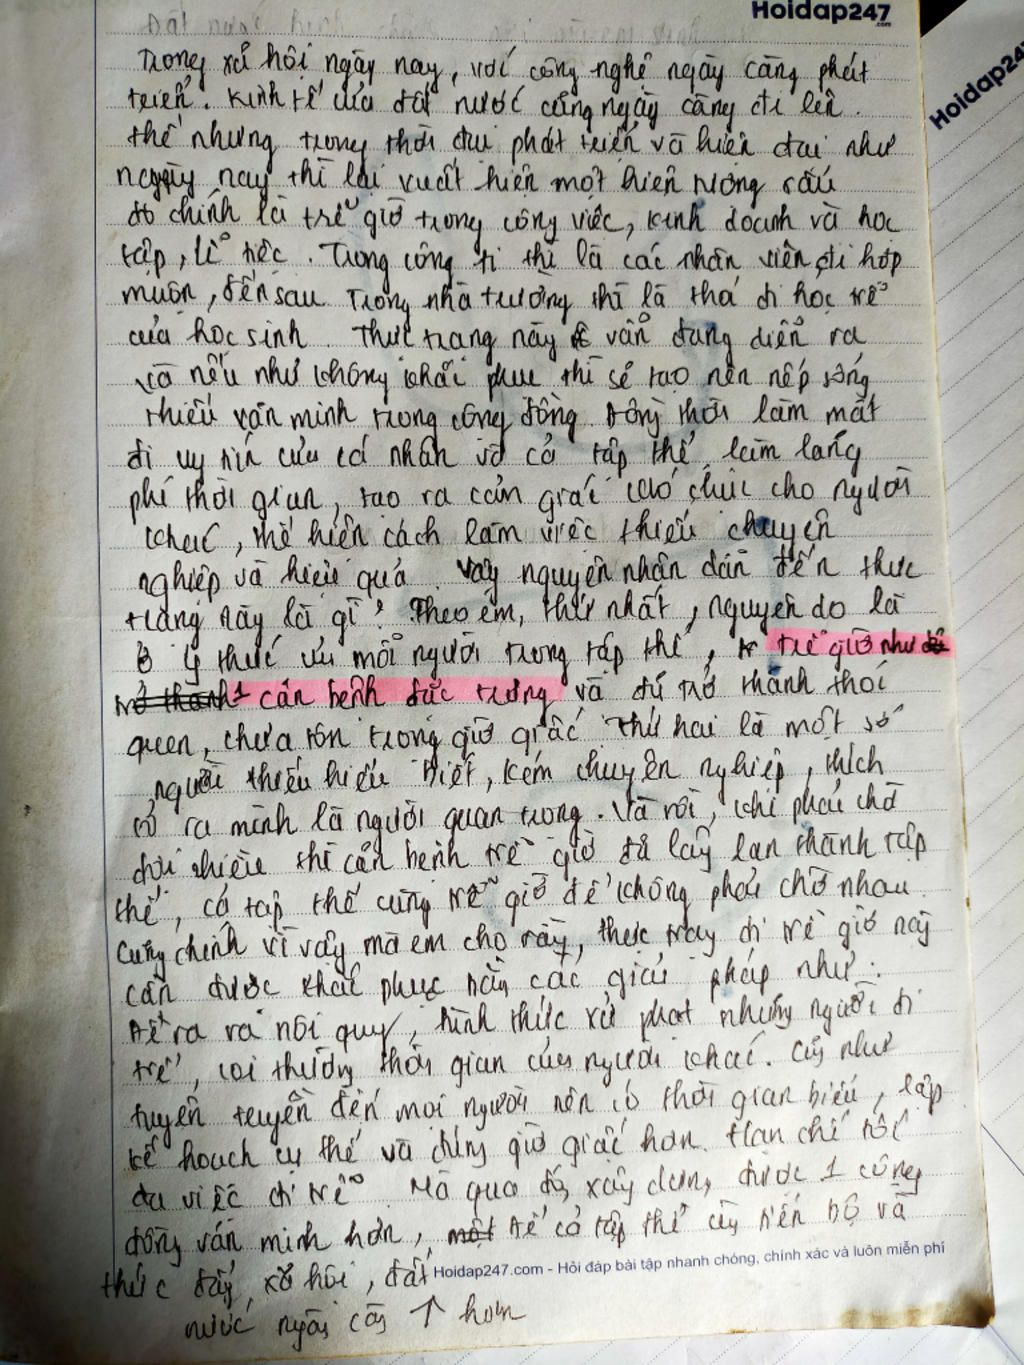 Hoidap247
.com
Hoidap247
Trong xã hội ngày nay, với công nghệ ngày càng phát
triển. Kinh tế của đất nước cũng ngày càng đi lên.
thế nhưng trong thời đại phát triển và hiện đại như
ngày nay thì lại xuất hiện một hiện tượng xấu
đó chính là trễ giờ trong công việc, kinh doanh và học
tập, lễ tiệc. Trong công ti thì là các nhân viên đi họp
muộn, đến sau. Trong nhà trường thì là thói đi học trễ
của học sinh. Thực trạng này vẫn đang diễn ra
và nếu như không khắc phục thì sẽ tạo nên nếp sống
thiếu văn minh trong cộng đồng. Đồng thời làm mất
đi uy tín của cá nhân và cả tập thể, làm lãng
phí thời gian, tạo ra cảm giác khó chịu cho người
khác, thể hiện cách làm việc thiếu chuyên
nghiệp và hiệu quả. Vậy nguyên nhân dẫn đến thực
trạng này là gì? Theo em, thứ nhất, nguyên do là
ở ý thức của mỗi người trong tập thể, trễ giờ như
căn bệnh đặc trưng và đã trở thành thói
quen, chưa tôn trọng giờ giấc. Thứ hai là một số
người thiếu hiểu biết, kém chuyên nghiệp, thích
tỏ ra mình là người quan trọng. Và rồi, khi phải chờ
đợi nhiều thì căn bệnh trễ giờ đã lây lan thành tập
thể, cả tập thể cùng trễ giờ để không phải chờ nhau.
Cũng chính vì vậy mà em cho rằng, thực trạng đi trễ giờ này
cần được khắc phục bằng các giải pháp như:
Đề ra nội quy, hình thức xử phạt những người đi
trễ, coi thường thời gian của người khác. Cũng như
tuyên truyền đến mọi người nên có thời gian biểu, lập
kế hoạch cụ thể và đúng giờ giấc hơn. Hạn chế tối
đa việc đi trễ. Mà qua đó, xây dựng được 1 cộng
đồng văn minh hơn, để cả tập thể cùng tiến bộ và
thúc đẩy xã hội, đất
Hoidap247.com - Hỏi đáp bài tập nhanh chóng, chính xác và luôn miễn phí
nước ngày càng ↑ hơn